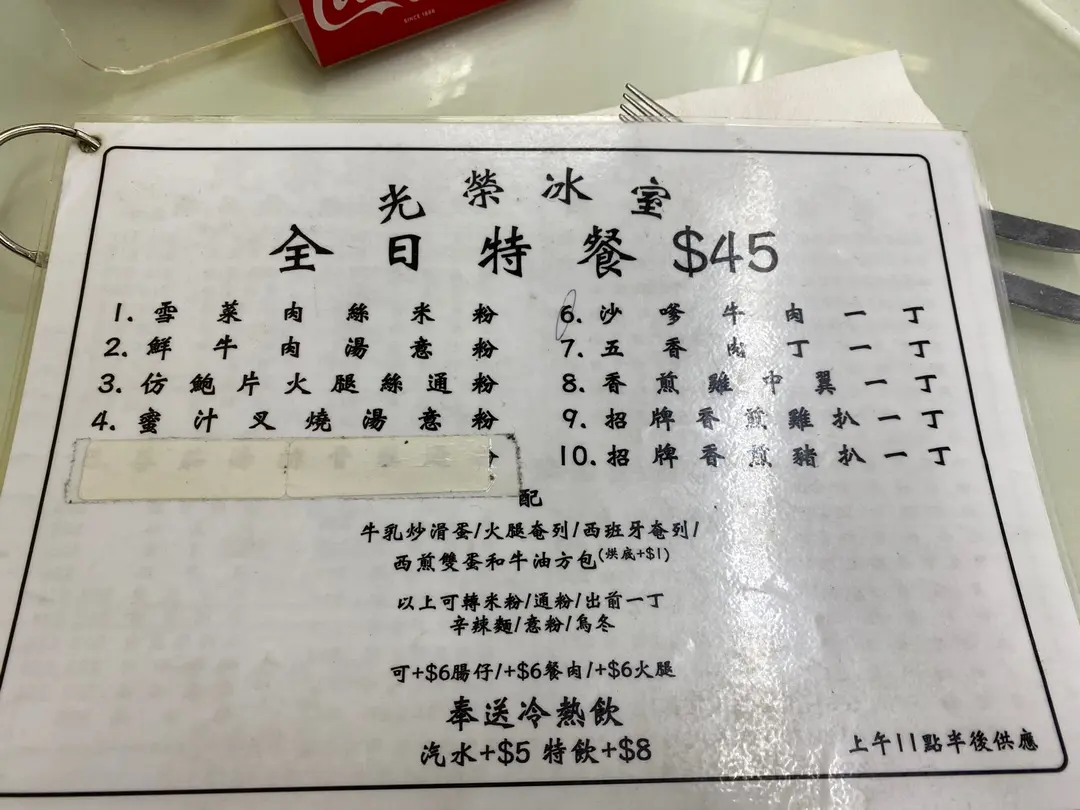 SINCE 1886
光榮冰室
全日特餐 $45
1. 雪菜肉絲米粉
2. 鮮牛肉湯意粉
3. 仿鮑片火腿絲通粉
4. 蜜汁叉燒湯意粉
6. 沙嗲牛肉一丁
7. 五香肉丁一丁
8. 香煎雞中翼一丁
9. 招牌香煎雞扒一丁
10. 招牌香煎豬扒一丁
配
牛乳炒滑蛋/火腿奄列/西班牙奄列/
西煎雙蛋和牛油方包(烘底+$1)
以上可轉米粉/通粉/出前一丁
辛辣麵/意粉/烏冬
可+$6腸仔/+$6餐肉/+$6火腿
奉送冷熱飲
汽水+$5 特飲+$8
上午11點半後供應